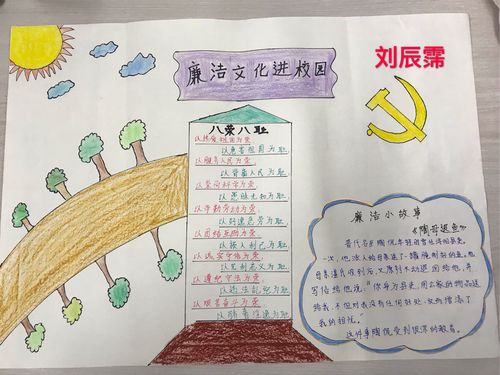 刘辰霈
廉洁文化进校园
八荣八耻
以热爱祖国为荣,
以危害祖国为耻,
以服务人民为荣,
以背离人民为耻,
以崇尚科学为荣,
以愚昧无知为耻,
以辛勤劳动为荣,
以好逸恶劳为耻,
以团结互助为荣,
以损人利己为耻,
以诚实守信为荣,
以见利忘义为耻,
以遵纪守法为荣,
以违法乱纪为耻,
以艰苦奋斗为荣,
以骄奢淫逸为耻,
廉洁小故事
《陶母退鱼》
晋代名
一次,他派人给母亲送了一罐腌制好的鱼。他
母亲湛氏收到后,又原封不动退回给他,并
写信给他说:"你身为县吏,用公家的物品送
给我,不但对我没有任何好处,反而增添了
我的担忧。"
这件事陶侃受到很深的教育。